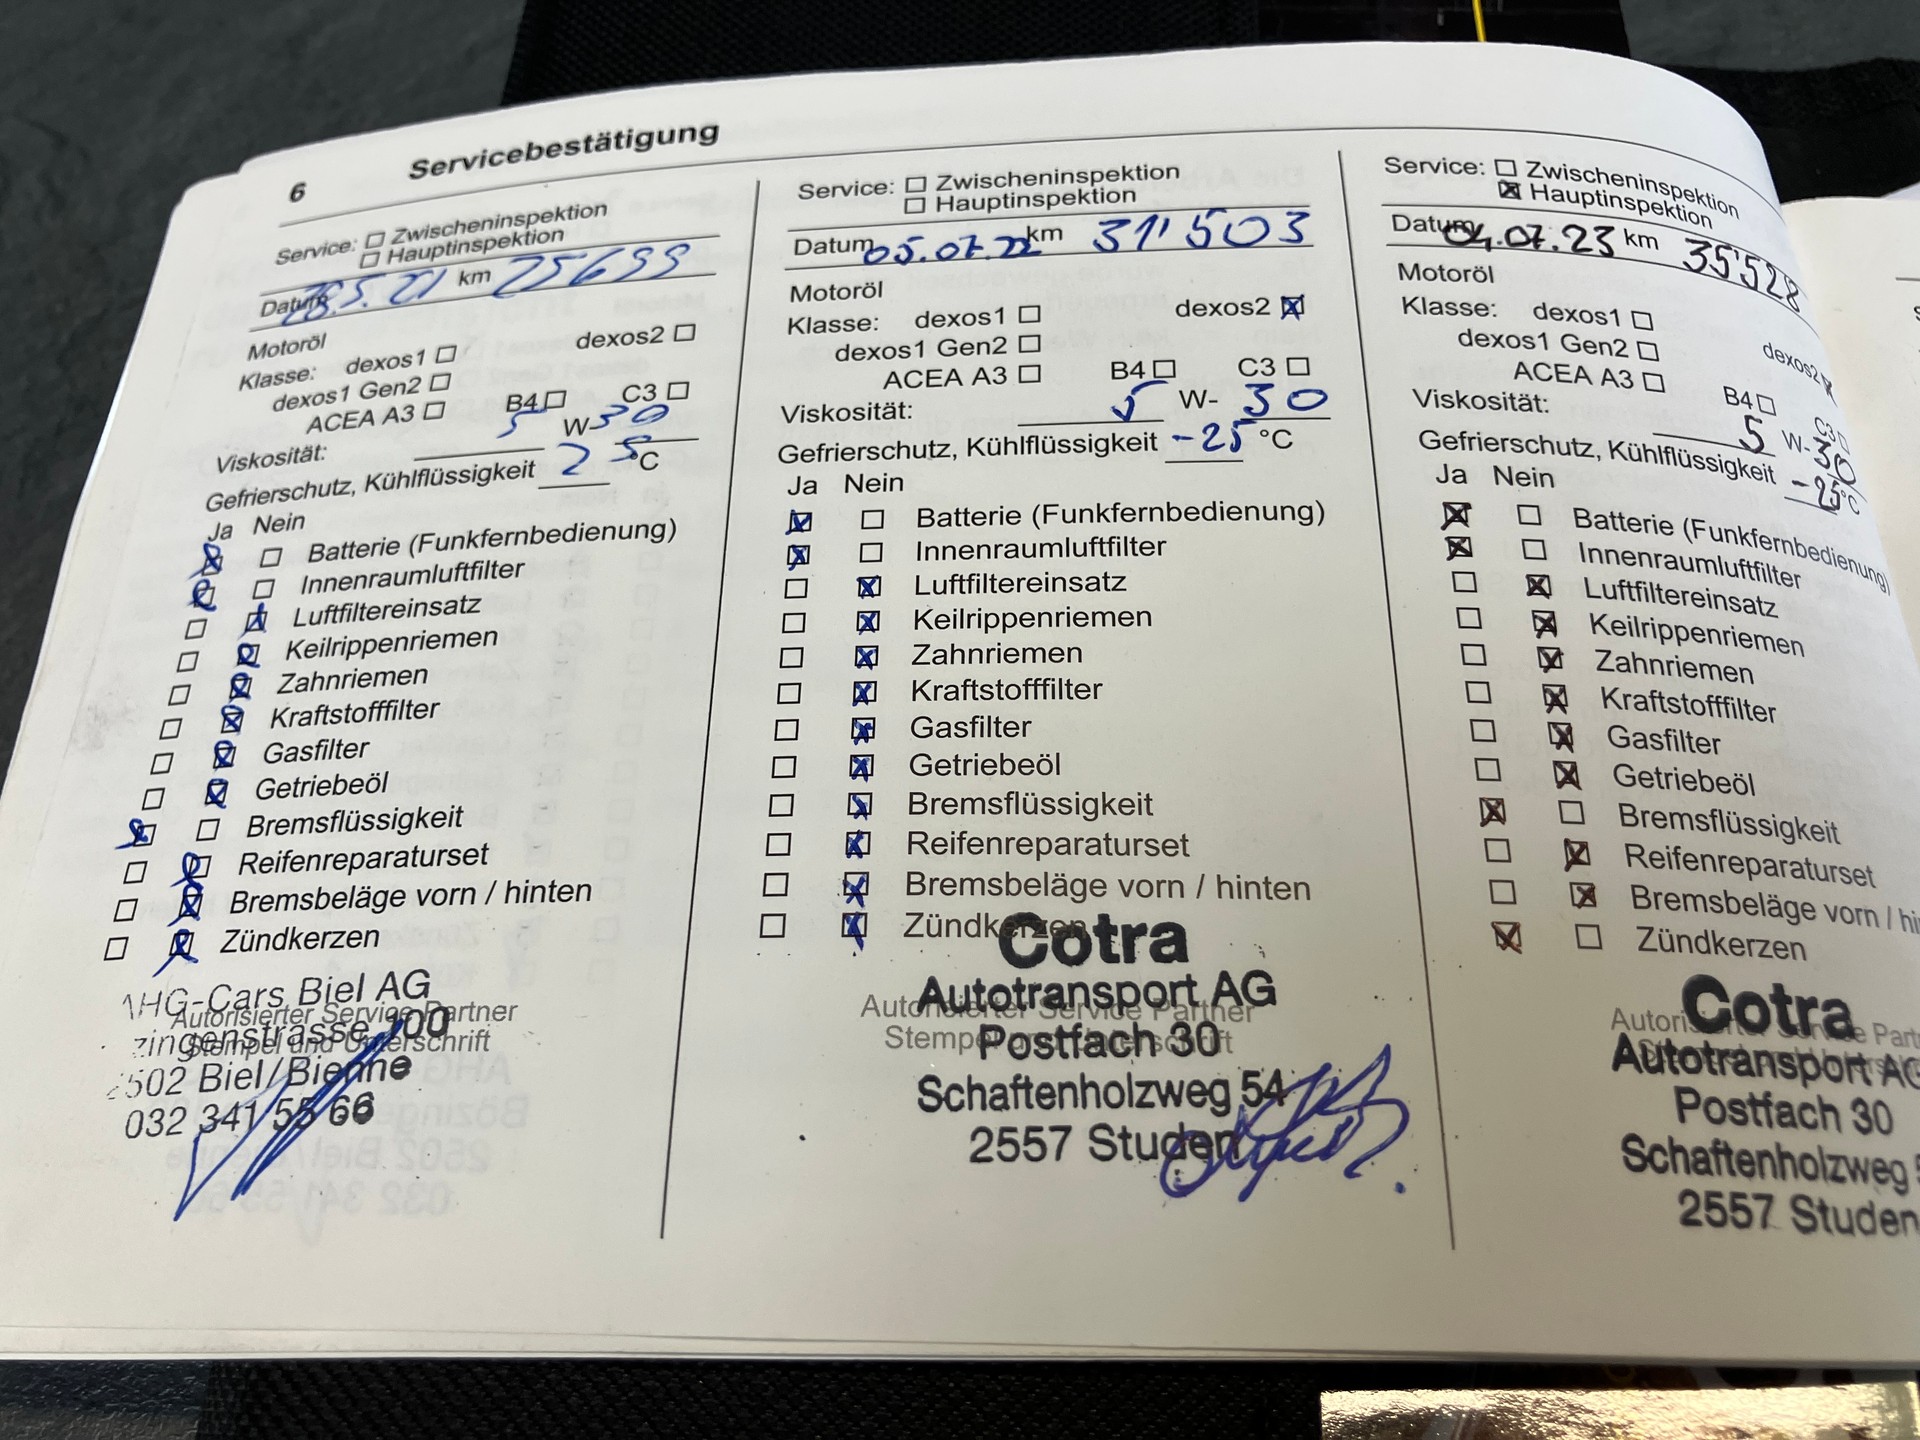 6 Servicebestätigung
Service: Zwischeninspektion
Hauptinspektion
Datum 28.5.21 km 25699
Motoröl
Klasse: dexos1 dexos2
dexos1 Gen2
ACEA A3 B4 C3
Viskosität: 5 W-30
Gefrierschutz, Kühlflüssigkeit 25 °C
Ja Nein
Batterie (Funkfernbedienung)
Innenraumluftfilter
Luftfiltereinsatz
Keilrippenriemen
Zahnriemen
Kraftstofffilter
Gasfilter
Getriebeöl
Bremsflüssigkeit
Reifenreparaturset
Bremsbeläge vorn / hinten
Zündkerzen
Autorisierter Service Partner
Stempel und Unterschrift
AHG-Cars Biel AG
zingenstrasse 100
2502 Biel/Bienne
032 341 55 66
Service: Zwischeninspektion
Hauptinspektion
Datum 05.07.22 km 31'503
Motoröl
Klasse: dexos1 dexos2
dexos1 Gen2
ACEA A3 B4 C3
Viskosität: 5 W- 30
Gefrierschutz, Kühlflüssigkeit -25 °C
Ja Nein
Batterie (Funkfernbedienung)
Innenraumluftfilter
Luftfiltereinsatz
Keilrippenriemen
Zahnriemen
Kraftstofffilter
Gasfilter
Getriebeöl
Bremsflüssigkeit
Reifenreparaturset
Bremsbeläge vorn / hinten
Zündkerzen
Autorisierter Service Partner
Stempel und Unterschrift
Cotra
Autotransport AG
Postfach 30
Schaftenholzweg 54
2557 Studen
Service: Zwischeninspektion
Hauptinspektion
Datum 04.07.23 km 35'528
Motoröl
Klasse: dexos1 dexos2
dexos1 Gen2
ACEA A3 B4 C3
Viskosität: 5 W-30
Gefrierschutz, Kühlflüssigkeit -25°C
Ja Nein
Batterie (Funkfernbedienung)
Innenraumluftfilter
Luftfiltereinsatz
Keilrippenriemen
Zahnriemen
Kraftstofffilter
Gasfilter
Getriebeöl
Bremsflüssigkeit
Reifenreparaturset
Bremsbeläge vorn / hi
Zündkerzen
Autorisierter Service Part
Cotra
Autotransport AG
Postfach 30
Schaftenholzweg 5
2557 Studen